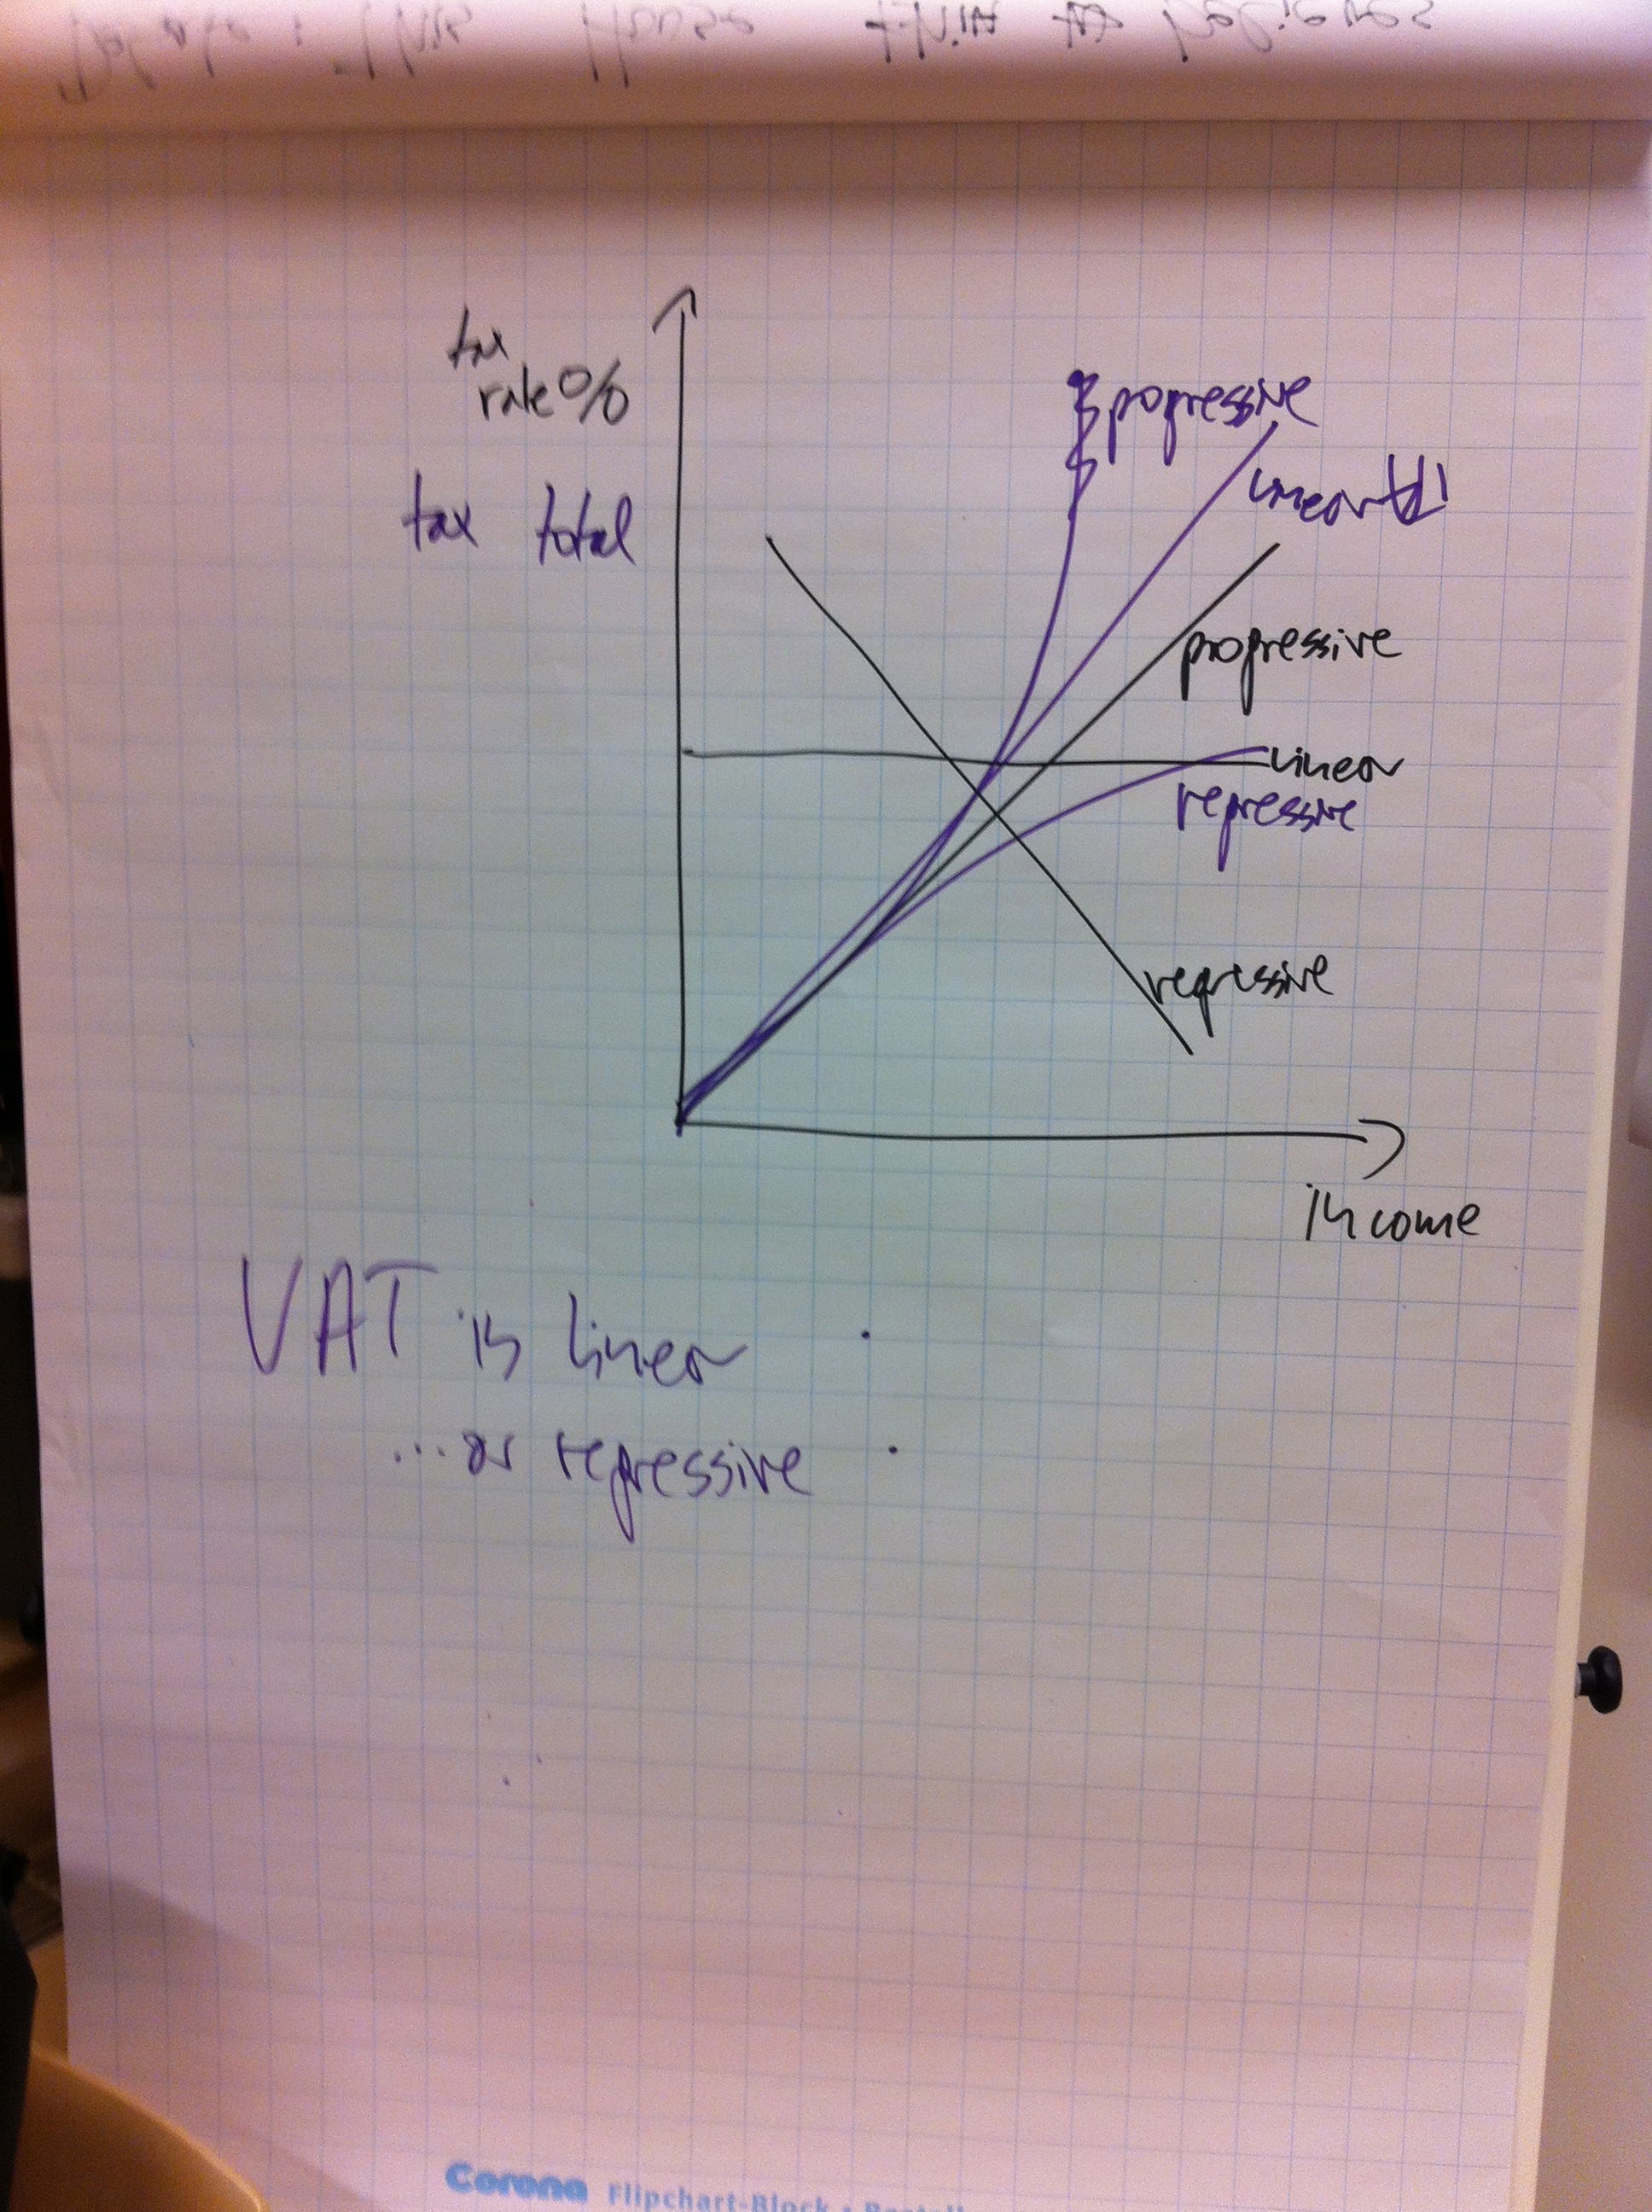 tax
rate %
progressive
tax total
linear
progressive
linear
repressive
regressive
income
VAT is linear
...or regressive
Corona Flipchart-Block •